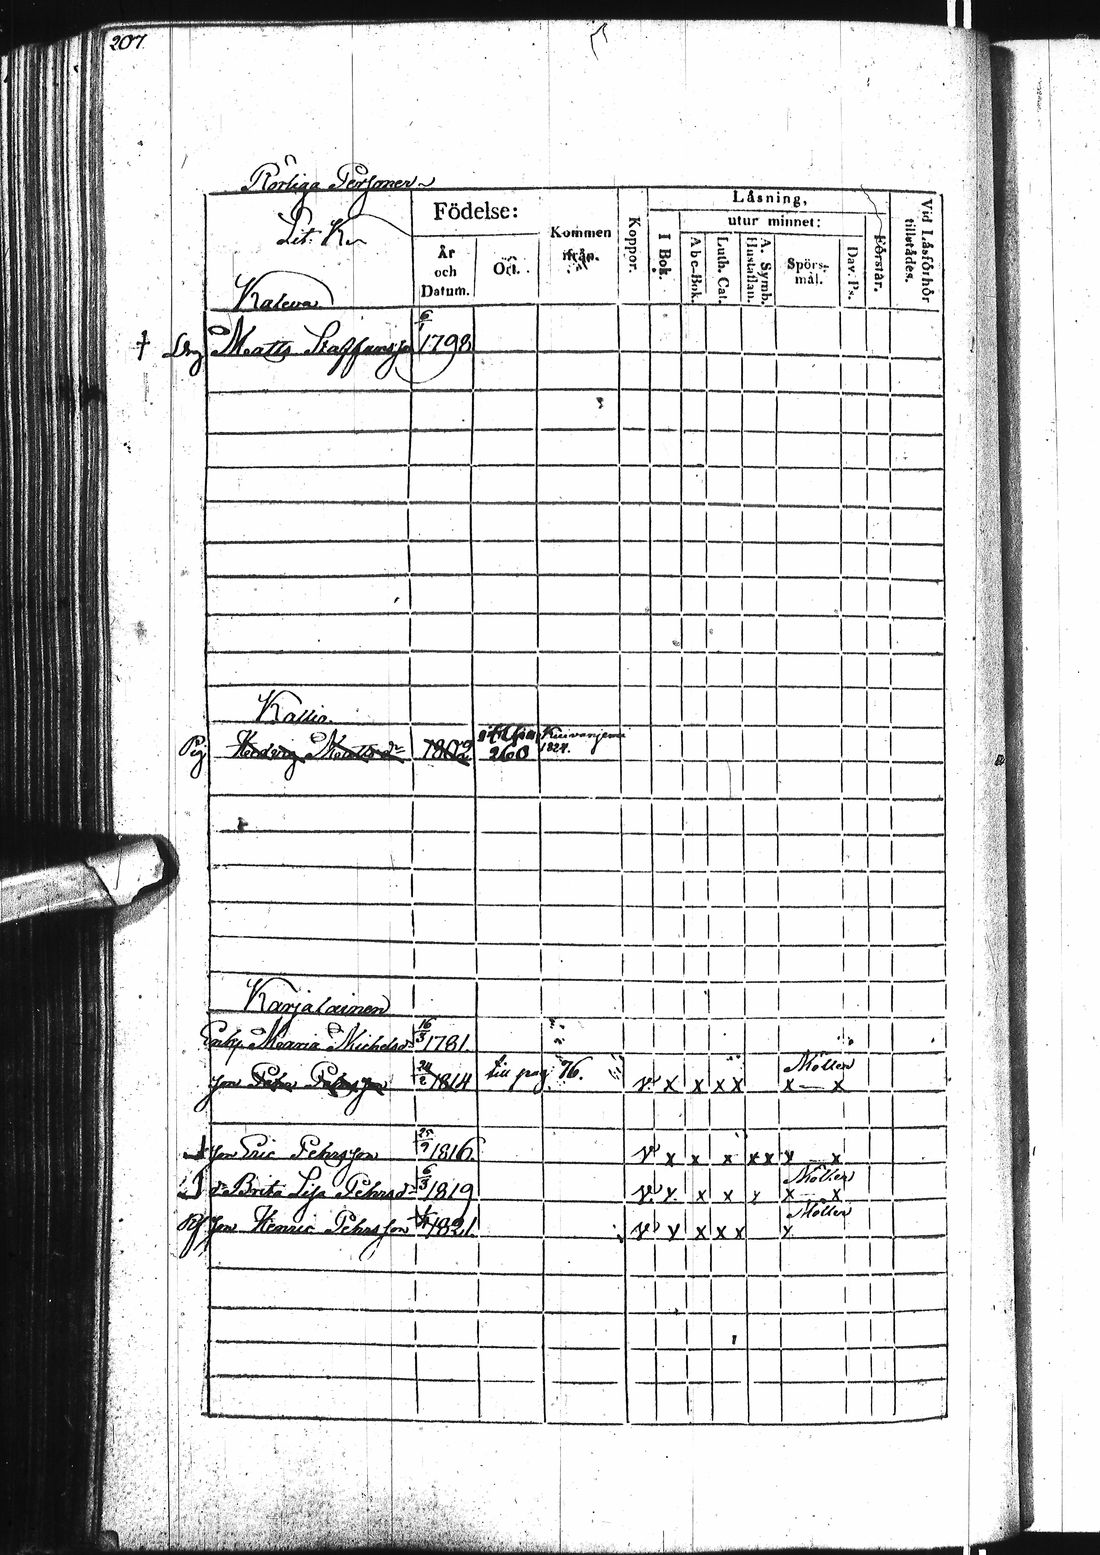 207
Rörliga Personer
Lit. K.
Födelse:
År och Datum.
Ort.
Kommen ifrån.
Koppor.
Läsning,
I Bok.
utur minnet:
Abc-Bok.
Luth. Cat.
A. Symb. Hustaflan.
Spörs-mål.
Dav. Ps.
Förstår.
Vid Läsförhör tillstädes.
Kaleva
† Drg Matts Staffansson 6/1 1798
Kallio
Pig Hedvig Mattsdr 1802 260 Kuivaniemi 1824.
Karjalainen
Enkp. Maria Michelsd. 16/3 1781.
Son Petter Pehrsson 24/2 1814 till pag. 76. v x x x x Möller x — x
Son Eric Pehrsson 25/7 1816. v x x x x x x — x
dr Brita Lisa Pehrsdr 6/3 1819 v x x x x Möller x — x
Son Henric Pehrsson 1821. v x x x x Möller x